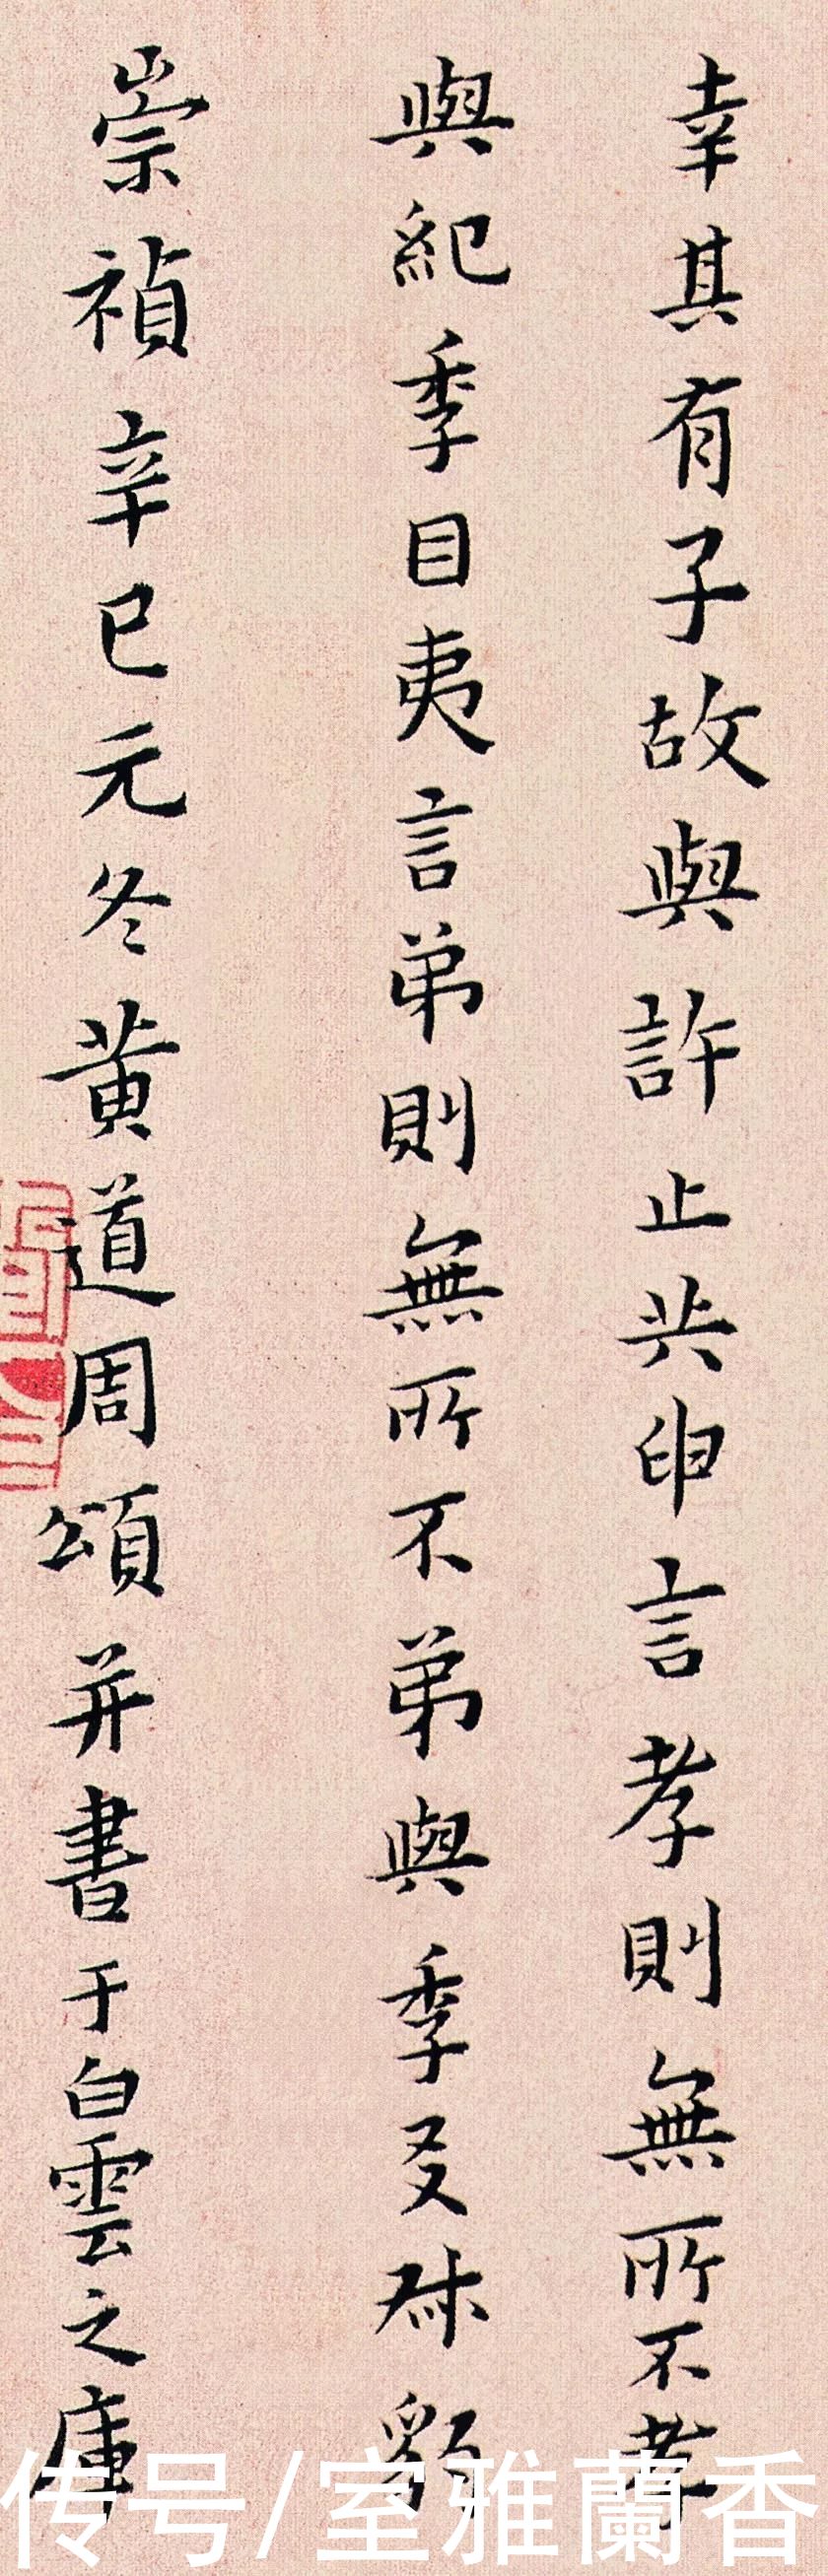 幸其有子故與許止共卑言孝則無所不孝
與紀季目夷言弟則無所不弟與季叔豹
崇禎辛巳元冬黃道周頌并書于白雲之庫
传号/室雅蘭香